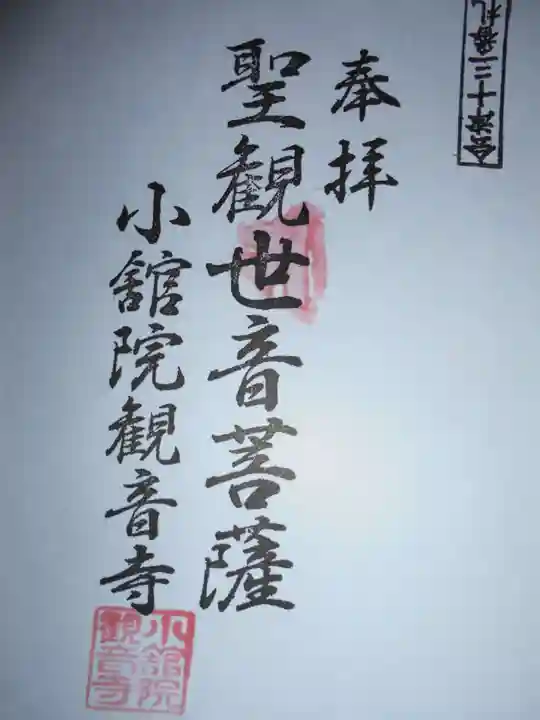 奉拝
聖観世音菩薩
小舘院観音寺
会津十三番札
小舘院
観音寺